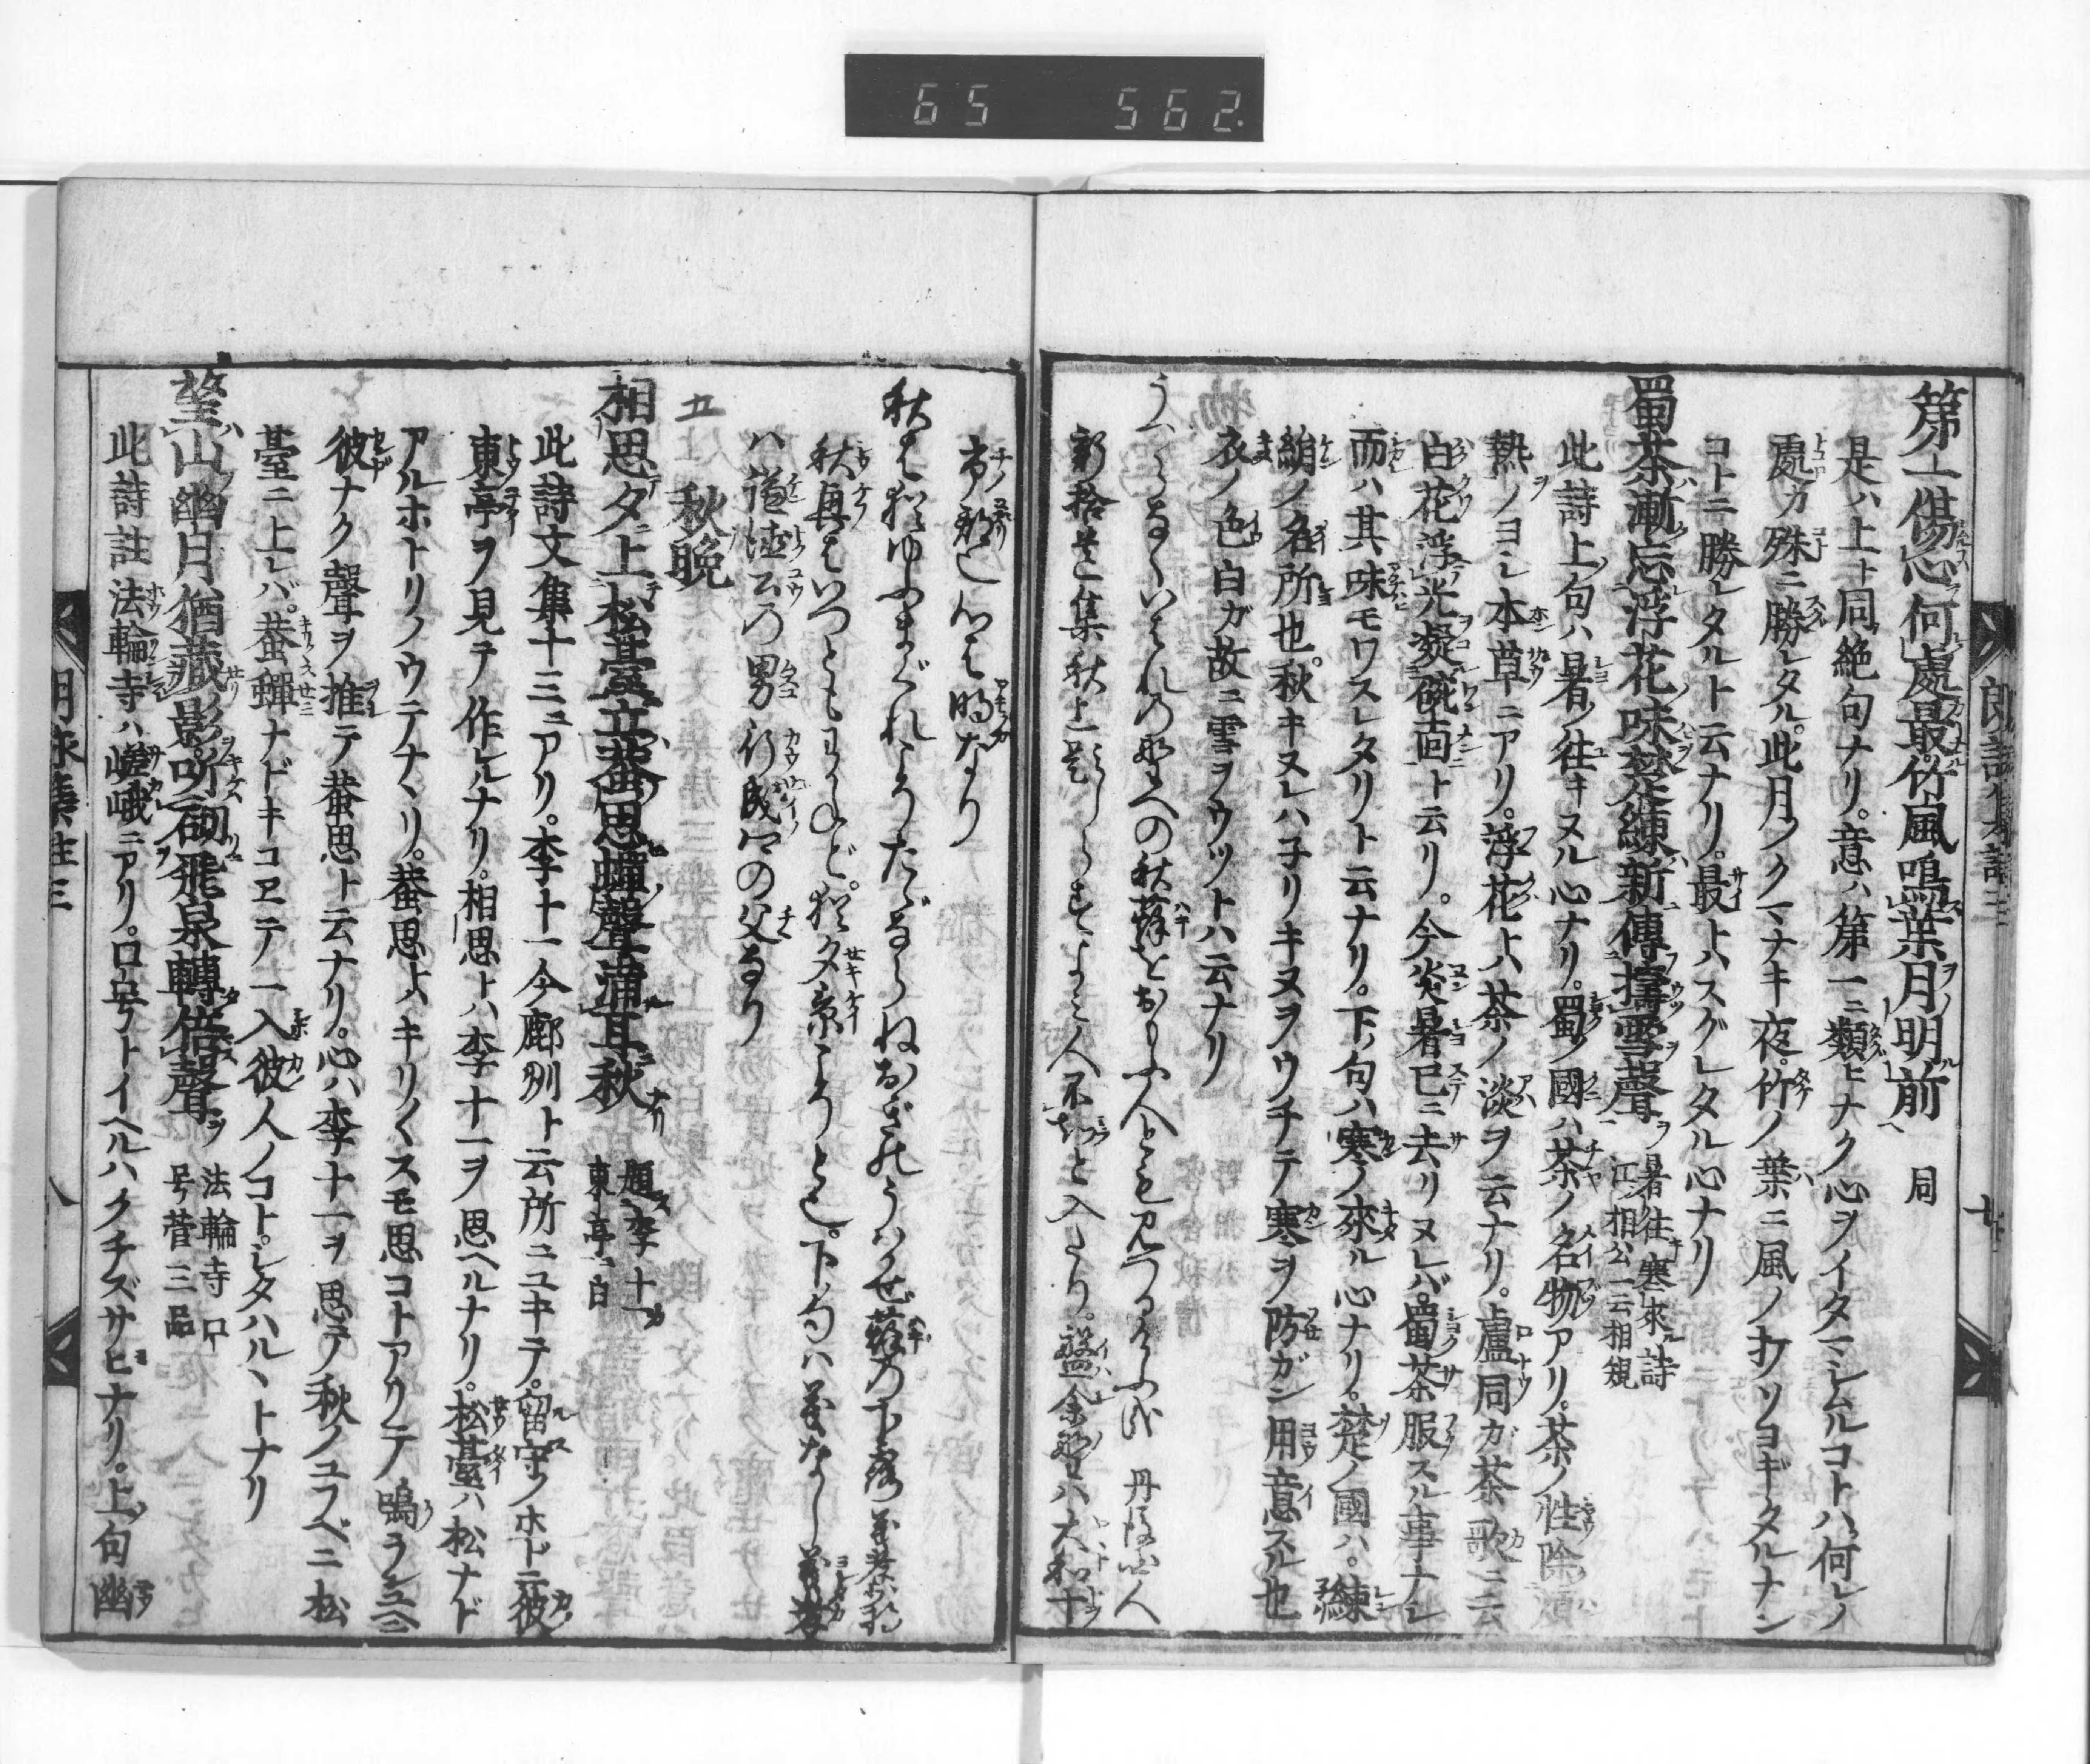 65 562.
第一傷心何處最竹風鳴葉月明前 同
是ハ上ト同絶句ナリ。意ハ第一ニ類ヒナク心ヲイタマシムルコトハ何レノ
處カ殊ニ勝レタル。此月ノクマナキ夜。竹ノ葉ニ風ノ打ソヨギタルナン
コトニ勝レタルト云ナリ。最トハスグレタル心ナリ
蜀茶漸忘浮花味楚練新傳擣雪聲 暑往寒來詩
江相公一云相規
此詩上ノ句ハ暑ノ往キヌル心ナリ。蜀ノ國ハ茶ノ名物アリ。茶ノ性除煩
熱ノヨシ本草ニアリ。浮花トハ茶ノ淡ヲ云ナリ。盧同ガ茶歌ニ云
白花浮光凝碗面ト云リ。今炎暑已ニ去リヌレバ。蜀茶服スル事ナシ
而ハ其味モワスレタリト云ナリ。下ノ句ハ寒ノ來ル心ナリ。楚ノ國ハ。練
絹ノ名所也。秋キヌレハネリキヌヲウチテ寒ヲ防ガン用意スル也
衣ノ色白ガ故ニ雪ヲウツトハ云ナリ
うつらなくいはれの野への秋萩をおもふ人とも見つるけふ哉 丹後国人
新拾是集秋上題しらすよみ人不知と入たり。磐余野ハ大和十
市ノ郡也心は明なり
秋は猶ゆふまぐれこそたゞならねおぎのうハかぜ萩の下露 義孝少将
秋興はいつともわかねど。猶夕景こそと也。下の句ハ義なし義孝
ハ謙徳公の男行成卿の父なり
五 秋晩
相思夕上松臺立蛬思蟬聲滿耳秋 題李十一
東亭 白
此詩文集十三ニアリ。李十一今鄜州ト云所ニユキテ。留守ノホドニ彼
東亭ヲ見テ作レルナリ。相思トハ李十一ヲ思ヘルナリ。松臺ハ松ナド
アルホトリノウテナヽリ。蛬思トハキリ〱スモ思コトアリテ鳴ラント
彼ナク聲ヲ推テ蛬思ト云ナリ。心ハ李十一ヲ思テノ秋ノユフベニ松
臺ニ上レバ。蛬蟬ナドキコヱテ一入彼人ノコト。シタハルヽトナリ
望山幽月猶藏影听砌飛泉轉倍聲 法輪寺口
号菅三品
此詩註法輪寺ハ嵯峨ニアリ。口号トイヘルハクチズサビナリ。上ノ句幽